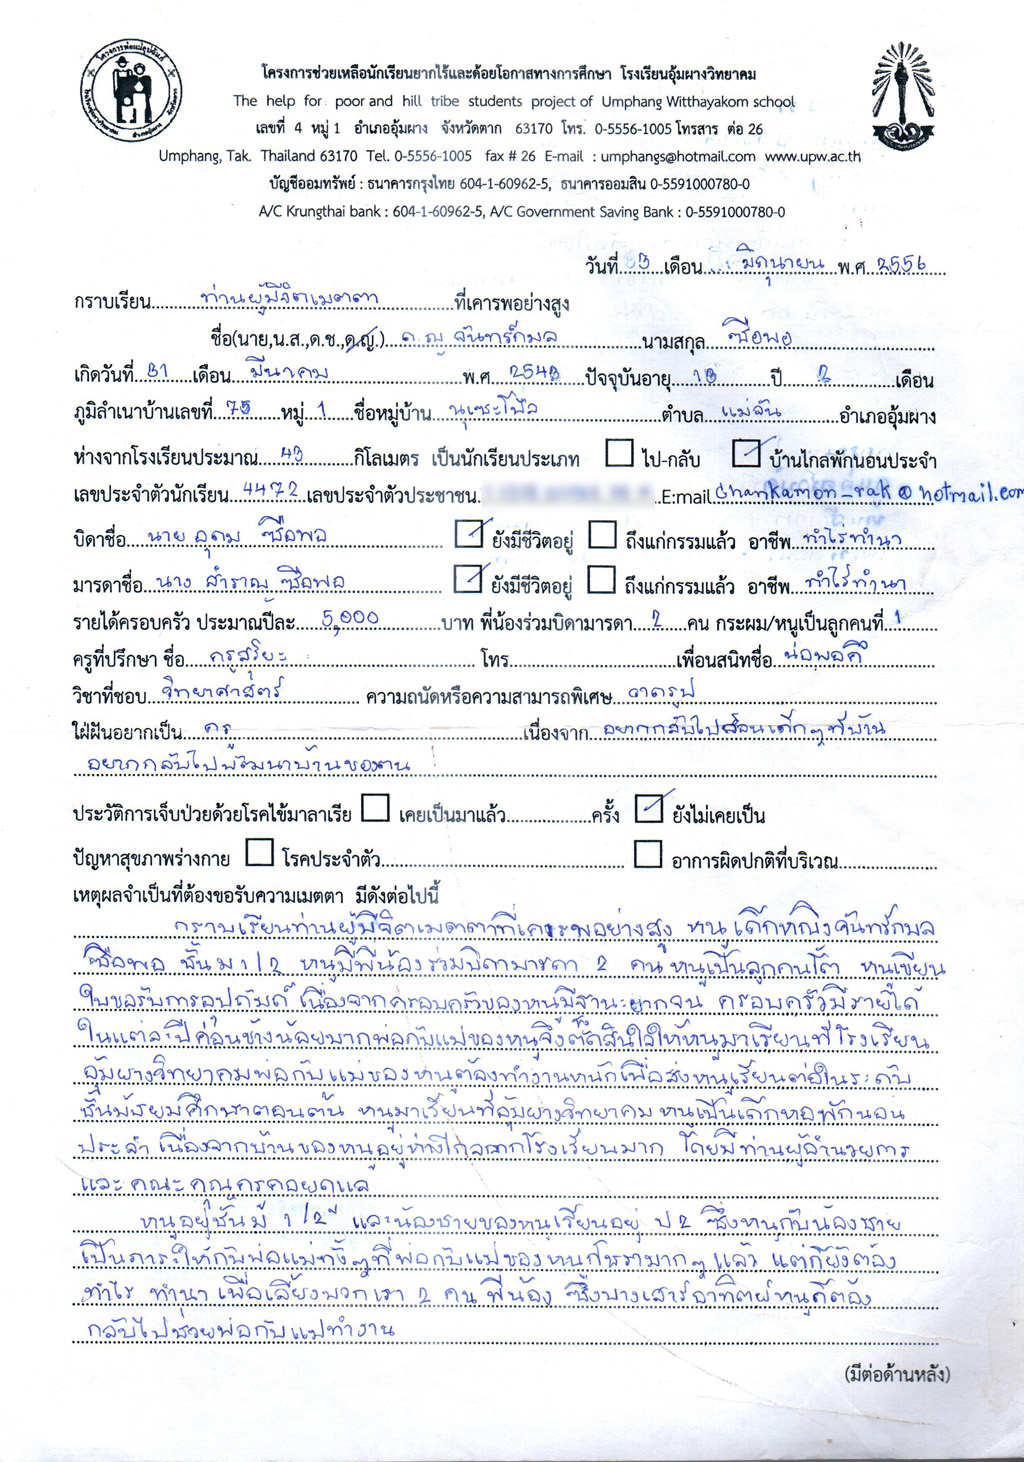 โครงการช่วยเหลือนักเรียนยากไร้และด้อยโอกาสทางการศึกษา โรงเรียนอุ้มผางวิทยาคม
The help for poor and hill tribe students project of Umphang Witthayakom school
เลขที่ 4 หมู่ 1 อำเภออุ้มผาง จังหวัดตาก 63170 โทร. 0-5556-1005 โทรสาร ต่อ 26
Umphang, Tak. Thailand 63170 Tel. 0-5556-1005 fax # 26 E-mail : umphangs@hotmail.com www.upw.ac.th
บัญชีออมทรัพย์ : ธนาคารกรุงไทย 604-1-60962-5, ธนาคารออมสิน 0-5591000780-0
A/C Krungthai bank : 604-1-60962-5, A/C Government Saving Bank : 0-5591000780-0
วันที่ เดือน มิถุนายน พ.ศ. 2556
กราบเรียน ท่านผู้มีจิตเมตตา ที่เคารพอย่างสูง
ชื่อ(นาย,น.ส.,ด.ช.,ด.ญ.) ด.ญ. จันทร์กมล นามสกุล ซือพอ
เกิดวันที่ 31 เดือน มีนาคม พ.ศ. 2543 ปัจจุบันอายุ 13 ปี 2 เดือน
ภูมิลำเนาบ้านเลขที่ 75 หมู่ 1 ชื่อหมู่บ้าน นุเซะโปล้ ตำบล แม่จัน อำเภออุ้มผาง
ห่างจากโรงเรียนประมาณ 43 กิโลเมตร เป็นนักเรียนประเภท ไป-กลับ บ้านไกลพักนอนประจำ
เลขประจำตัวนักเรียน 4472 เลขประจำตัวประชาชน E:mail chankamon_rak@hotmail.com
บิดาชื่อ นาย อุดม ซือพอ ยังมีชีวิตอยู่ ถึงแก่กรรมแล้ว อาชีพ ทำไร่ทำนา
มารดาชื่อ นาง สำราญ ซือพอ ยังมีชีวิตอยู่ ถึงแก่กรรมแล้ว อาชีพ ทำไร่ทำนา
รายได้ครอบครัว ประมาณปีละ 5,000 บาท พี่น้องร่วมบิดามารดา 2 คน กระผม/หนูเป็นลูกคนที่ 1
ครูที่ปรึกษา ชื่อ ครูสุริยะ โทร เพื่อนสนิทชื่อ น่อพอคี
วิชาที่ชอบ วิทยาศาสตร์ ความถนัดหรือความสามารถพิเศษ วาดรูป
ใฝ่ฝันอยากเป็น ครู เนื่องจาก อยากกลับไปสอนเด็กๆที่บ้าน
อยากกลับไปพัฒนาบ้านของตน
ประวัติการเจ็บป่วยด้วยโรคไข้มาลาเรีย เคยเป็นมาแล้ว ครั้ง ยังไม่เคยเป็น
ปัญหาสุขภาพร่างกาย โรคประจำตัว อาการผิดปกติที่บริเวณ
เหตุผลจำเป็นที่ต้องขอรับความเมตตา มีดังต่อไปนี้
กราบเรียนท่านผู้มีจิตเมตตาที่เคารพอย่างสูง หนูเด็กหญิงจันทร์กมล
ซือพอ ชั้น ม 1/2 หนูมีพี่น้องร่วมบิดามารดา 2 คน หนูเป็นลูกคนโต หนูเขียน
ใบขอรับการอุปถัมถ์ เนื่องจากครอบครัวของหนูมีฐานะยากจน ครอบครัวมีรายได้
ในแต่ละปีค่อนข้างน้อยมากพ่อกับแม่ของหนูจึงตั้งตัดสินใจให้หนูมาเรียนที่โรงเรียน
อุ้มผางวิทยาคมพ่อกับแม่ของหนูต้องทำงานหนักเพื่อส่งหนูเรียนต่อในระดับ
ชั้นมัธยมศึกษาตอนต้น หนูมาเรียนที่อุ้มผางวิทยาคม หนูเป็นเด็กหอพักนอน
ประจำ เนื่องจากบ้านของหนูอยู่ห่างไกลจากโรงเรียนมาก โดยมีท่านผู้อำนวยการ
และ คณะคุณครูคอยดูแล
หนูอยู่ชั้นม. 1/2 และน้องชายของหนูเรียนอยู่ ป 2 ซึ่งหนูกับน้องชาย
เป็นภาระให้กับพ่อแม่ทั้งๆที่พ่อกับแม่ของหนูก็ชรามากๆแล้ว แต่ก็ยังต้อง
ทำไร่ ทำนา เพื่อเลี้ยงพวกเรา 2 คน พี่น้อง ซึ่งบางเสาร์อาทิตย์หนูก็ต้อง
กลับไปช่วยพ่อกับแม่ทำงาน
(มีต่อด้านหลัง)